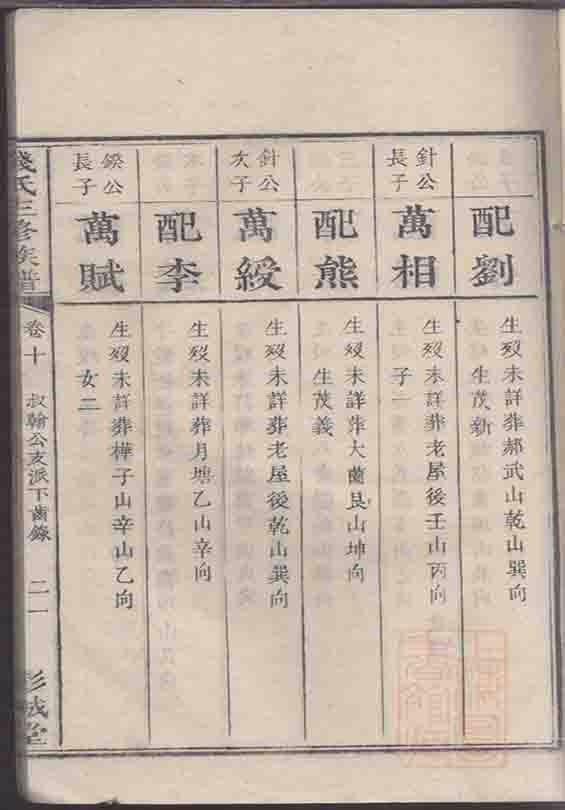 配劉
生歿未詳葬郝武山乾山巽向
生茂新
針公
長子
萬相
生歿未詳葬老屋後壬山丙向
子一
配熊
生歿未詳葬大蘭艮山坤向
生茂義
針公
次子
萬綬
生歿未詳葬老屋後乾山巽向
配李
生歿未詳葬月塘乙山辛向
鍨公
長子
萬賦
生歿未詳葬樺子山辛山乙向
女二
錢氏三修族譜
卷十
叔翰公支派下齒錄
二一
彭城堂